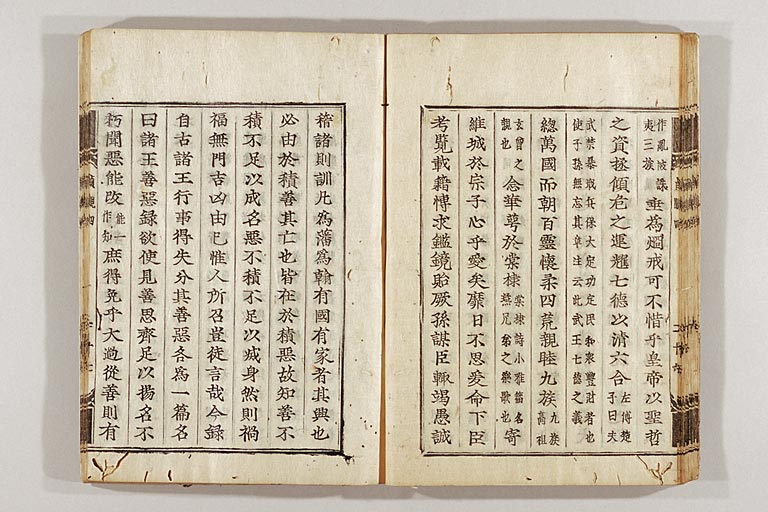 作亂被誅
夷三族 垂爲烱戒可不惜乎皇帝以聖哲
之資拯傾危之運耀七德以清六合 左傳楚
子曰夫
武禁暴戢兵保大定功安民和衆豐財者也
使子孫無忘其章注云此武王七德之義
緫萬國而朝百靈懷柔四荒親睦九族 九族
高祖
玄曾之
親也 念華萼於棠棣 棠棣詩小雅篇名
燕兄弟之樂歌也 寄
維城於宗子心乎愛矣靡日不思爰命下臣
考覽載籍博求鑑鏡貽厥孫謀臣輒竭愚誠
稽諸則訓凡爲藩爲翰有國有家者其興也
必由於積善其亡也皆在於積惡故知善不
積不足以成名惡不積不足以滅身然則禍
福無門吉凶由己惟人所召豈徒言哉今錄
自古諸王行事得失分其善惡各爲一篇名
曰諸王善惡錄欲使見善思齊足以揚名不
朽聞惡能改 能一
作知 庶得免乎大過從善則有